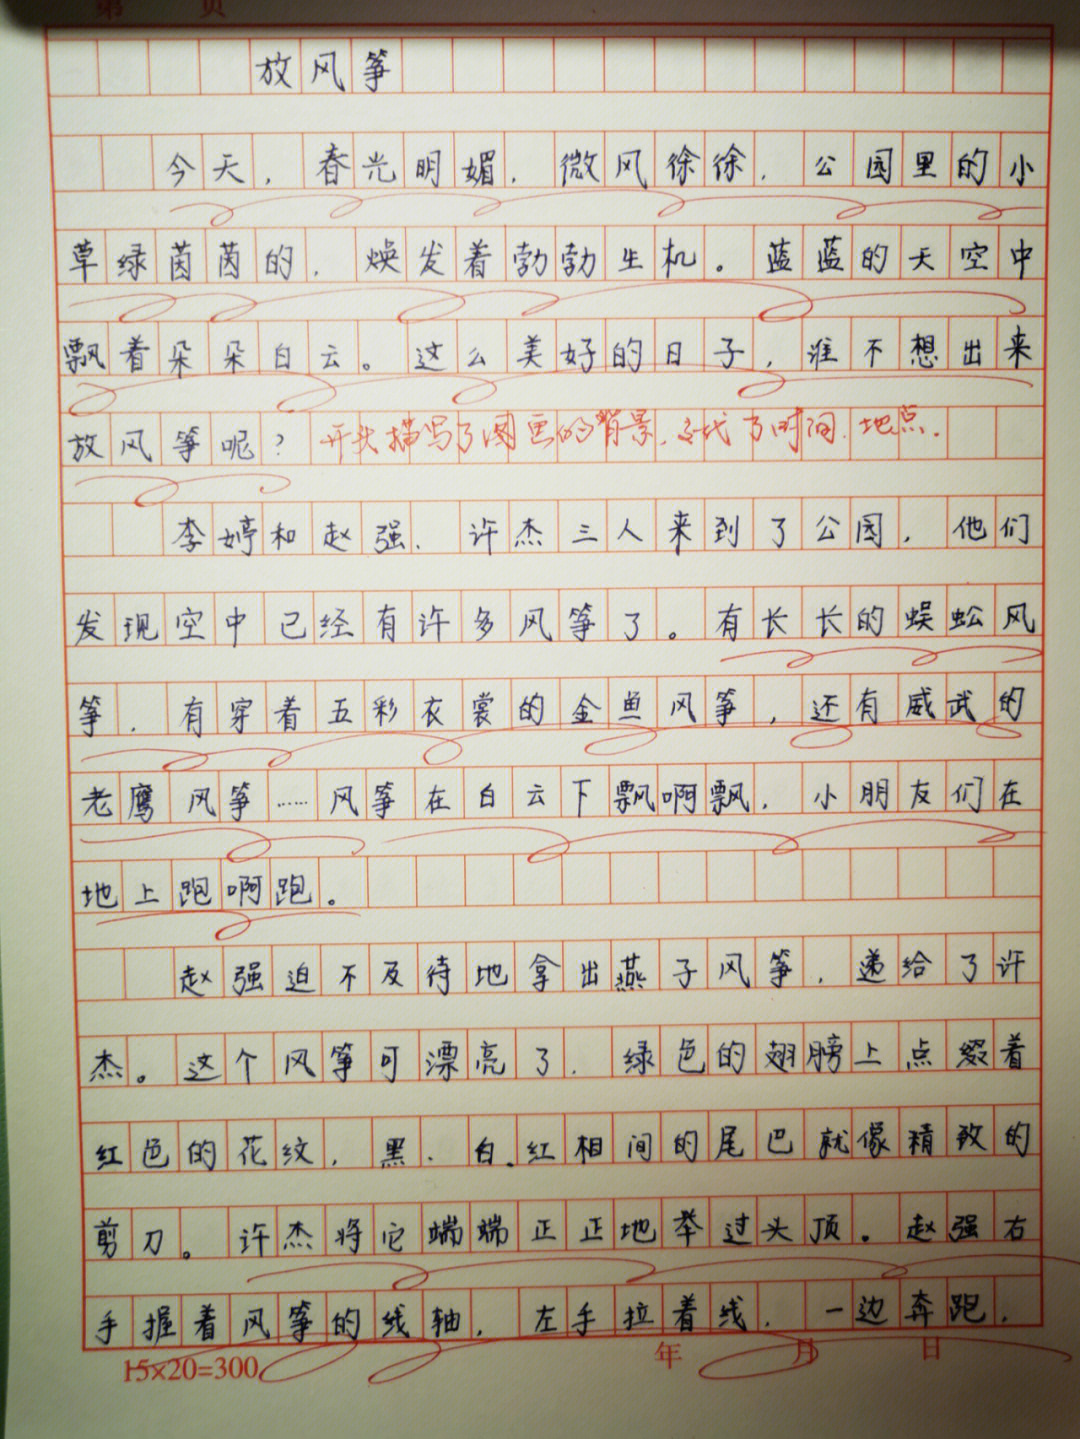 第 页
放风筝
今天，春光明媚，微风徐徐，公园里的小
草绿茵茵的，焕发着勃勃生机。蓝蓝的天空中
飘着朵朵白云。这么美好的日子，谁不想出来
放风筝呢？开头描写了图画的背景，交代了时间、地点。
李婷和赵强、许杰三人来到了公园，他们
发现空中已经有许多风筝了。有长长的蜈蚣风
筝，有穿着五彩衣裳的金鱼风筝，还有威武的
老鹰风筝……风筝在白云下飘啊飘，小朋友们在
地上跑啊跑。
赵强迫不及待地拿出燕子风筝，递给了许
杰。这个风筝可漂亮了，绿色的翅膀上点缀着
红色的花纹，黑、白、红相间的尾巴就像精致的
剪刀。许杰将它端端正正地举过头顶。赵强右
手握着风筝的线轴，左手拉着线，一边奔跑，
15×20=300 年 月 日